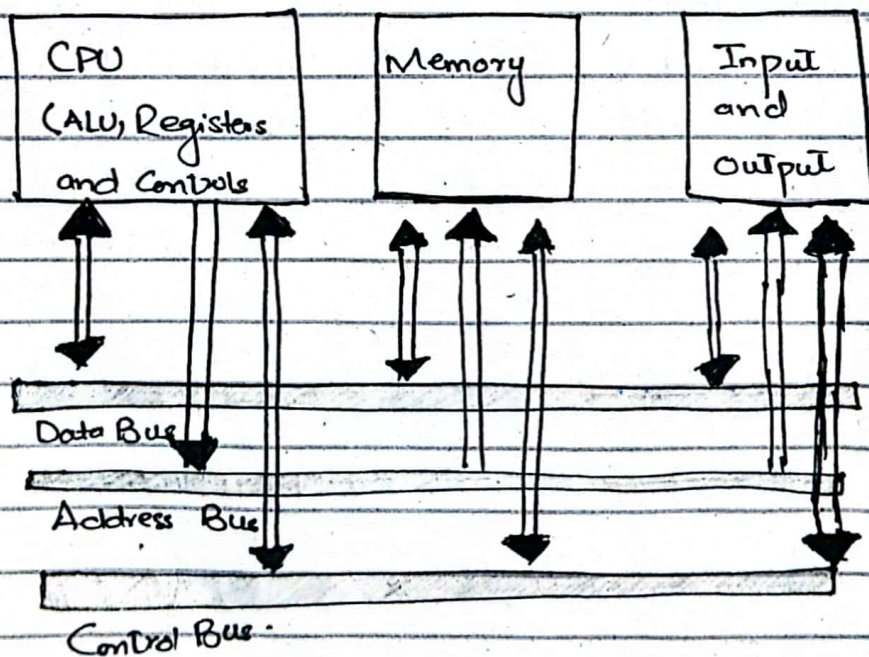 CPU
(ALU, Registers
and Controls
Memory
Input
and
output
Data Bus
Address Bus
Control Bus.